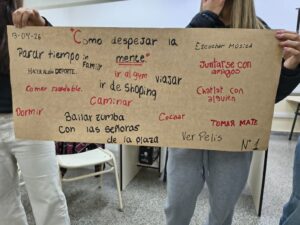 13-04-26
"Como despejar la
mente"
Escuchar Música
Pasar tiempo in Family
Juntarse con
amigos
Hacer algún DEPORTE.
ir al gym
viajar
Comer saludable.
ir de Shoping
Chatiar con
alguien
Caminar
Dormir
Bailar zumba
con las señoras
de la plaza
Cocinar
TOMAR MATE
Ver Pelis
N°1